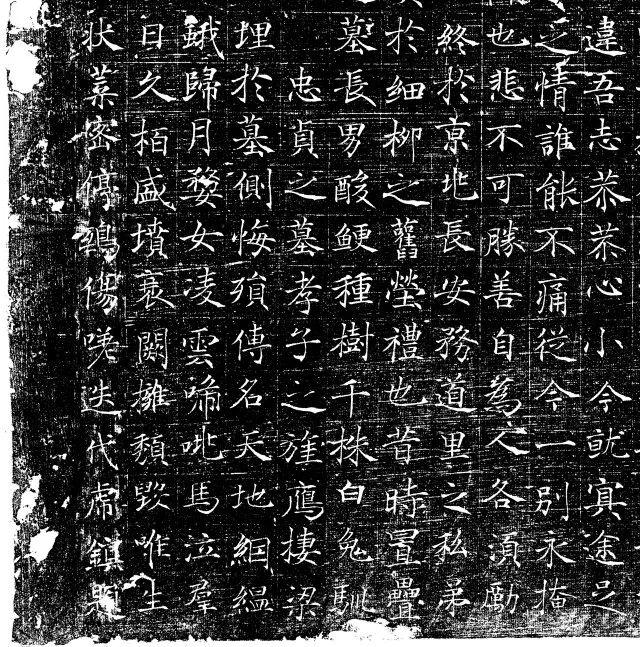 違吾志恭恭心小今就冥途足
之情誰能不痛從今一別永掩
也悲不可勝善自為之各須勵
終於京地長安務道里之私弟
於細柳之舊塋禮也昔時置疊
墓長男酸鯁種樹千株白兔馴
忠貞之墓孝子之旌鷹棲梁
埋於墓側悔殞傳名天地絪緼
蛾歸月婺女凌雲啼吡馬泣羣
日久栢盛墳衰闕摧頹毀唯生
狀葉密停鵶傷嗟迭代鎮